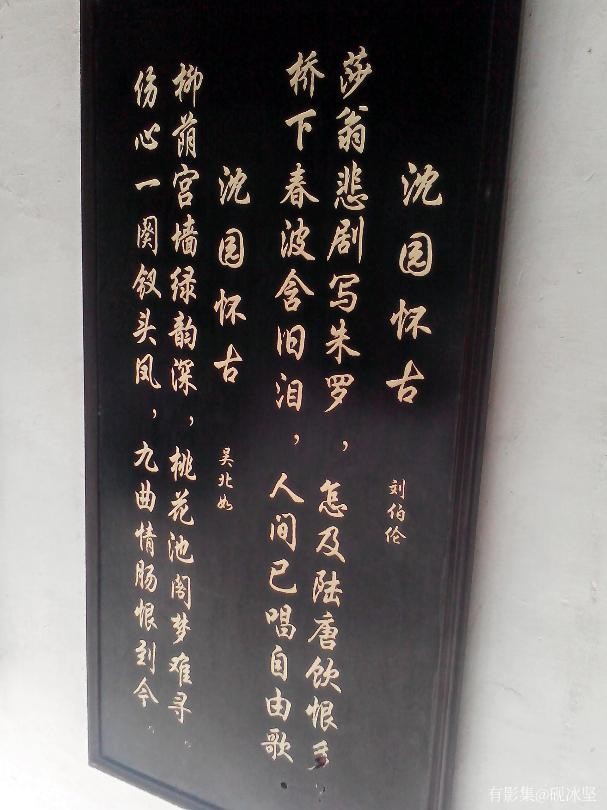 沈园怀古
刘伯伦
莎翁悲剧写朱罗，怎及陆唐饮恨多。
桥下春波含旧泪，人间已唱自由歌
沈园怀古
吴北如
柳荫宫墙绿韵深，桃花池阁梦难寻。
伤心一阕钗头凤，九曲情肠恨到今。
有影集@砚冰坚